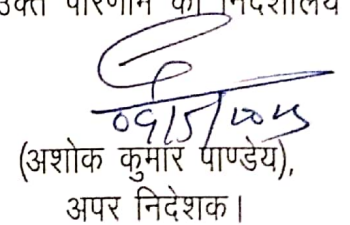 उक्त परिणाम को निदेशालय
(अशोक कुमार पाण्डेय),
अपर निदेशक।